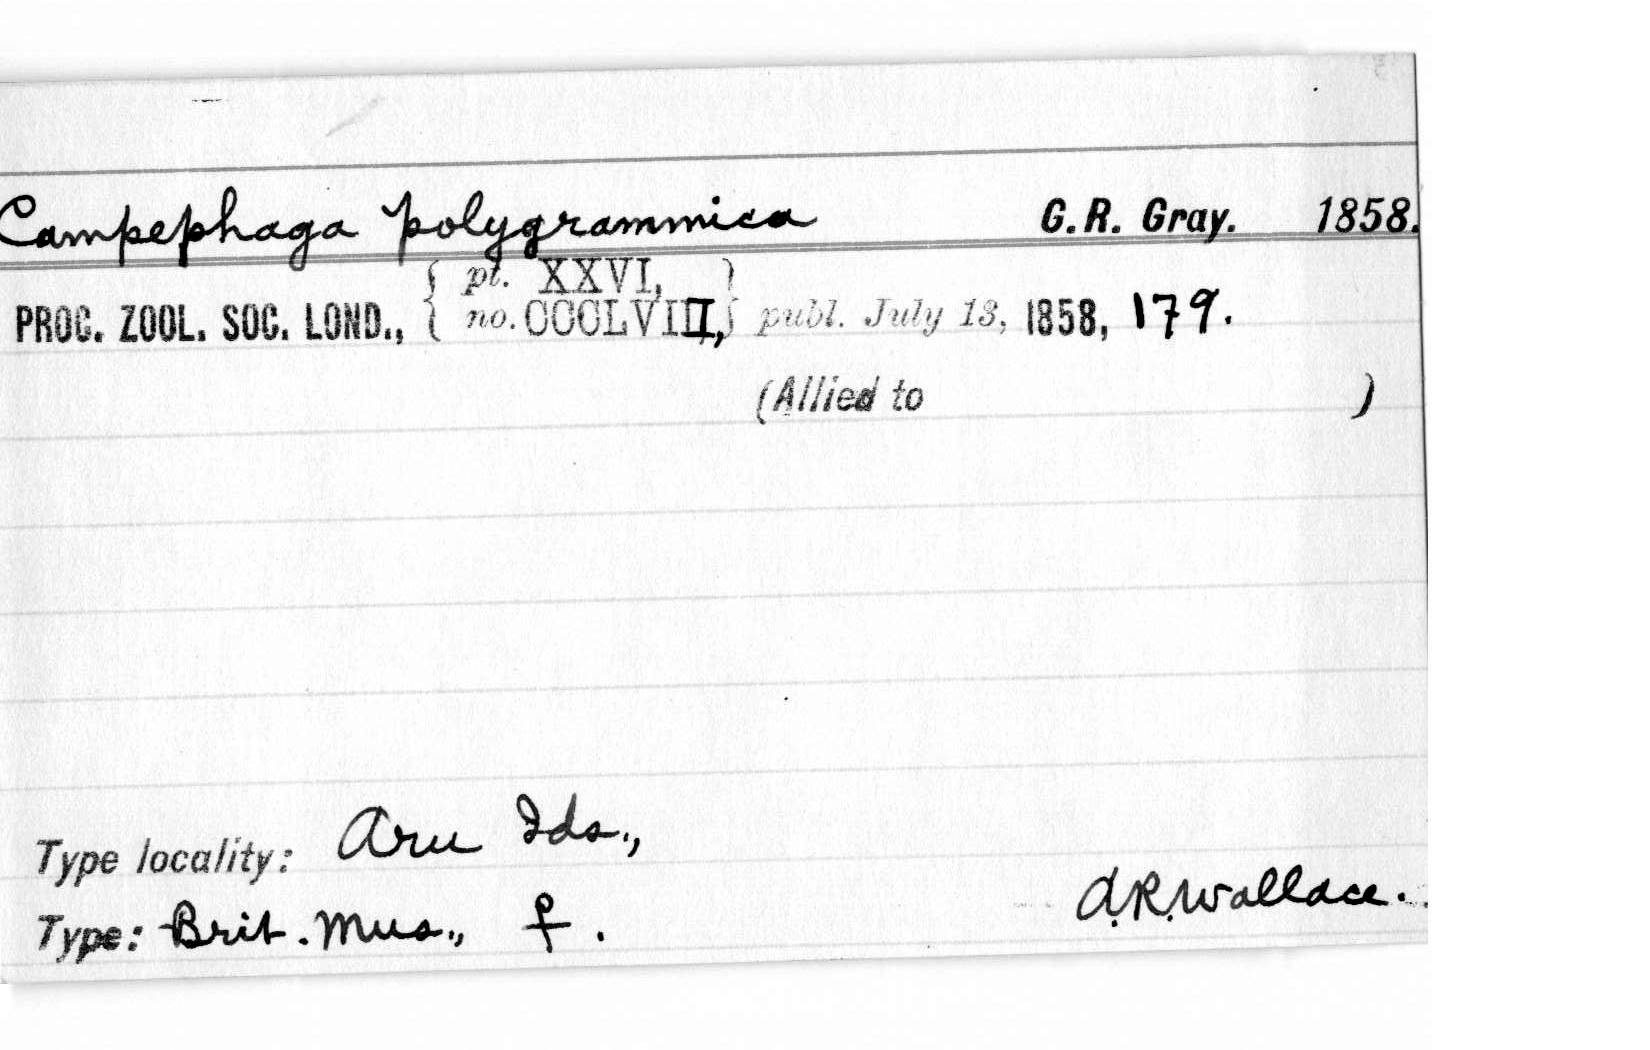 Campephaga polygrammica G.R. Gray. 1858.
{ pt. XXVI, }
PROC. ZOOL. SOC. LOND., { no. CCCLVIII, } publ. July 13, 1858, 179.
(Allied to )
Type locality: Aru Ids.,
Type: Brit. Mus., ♀. A.R. Wallace.